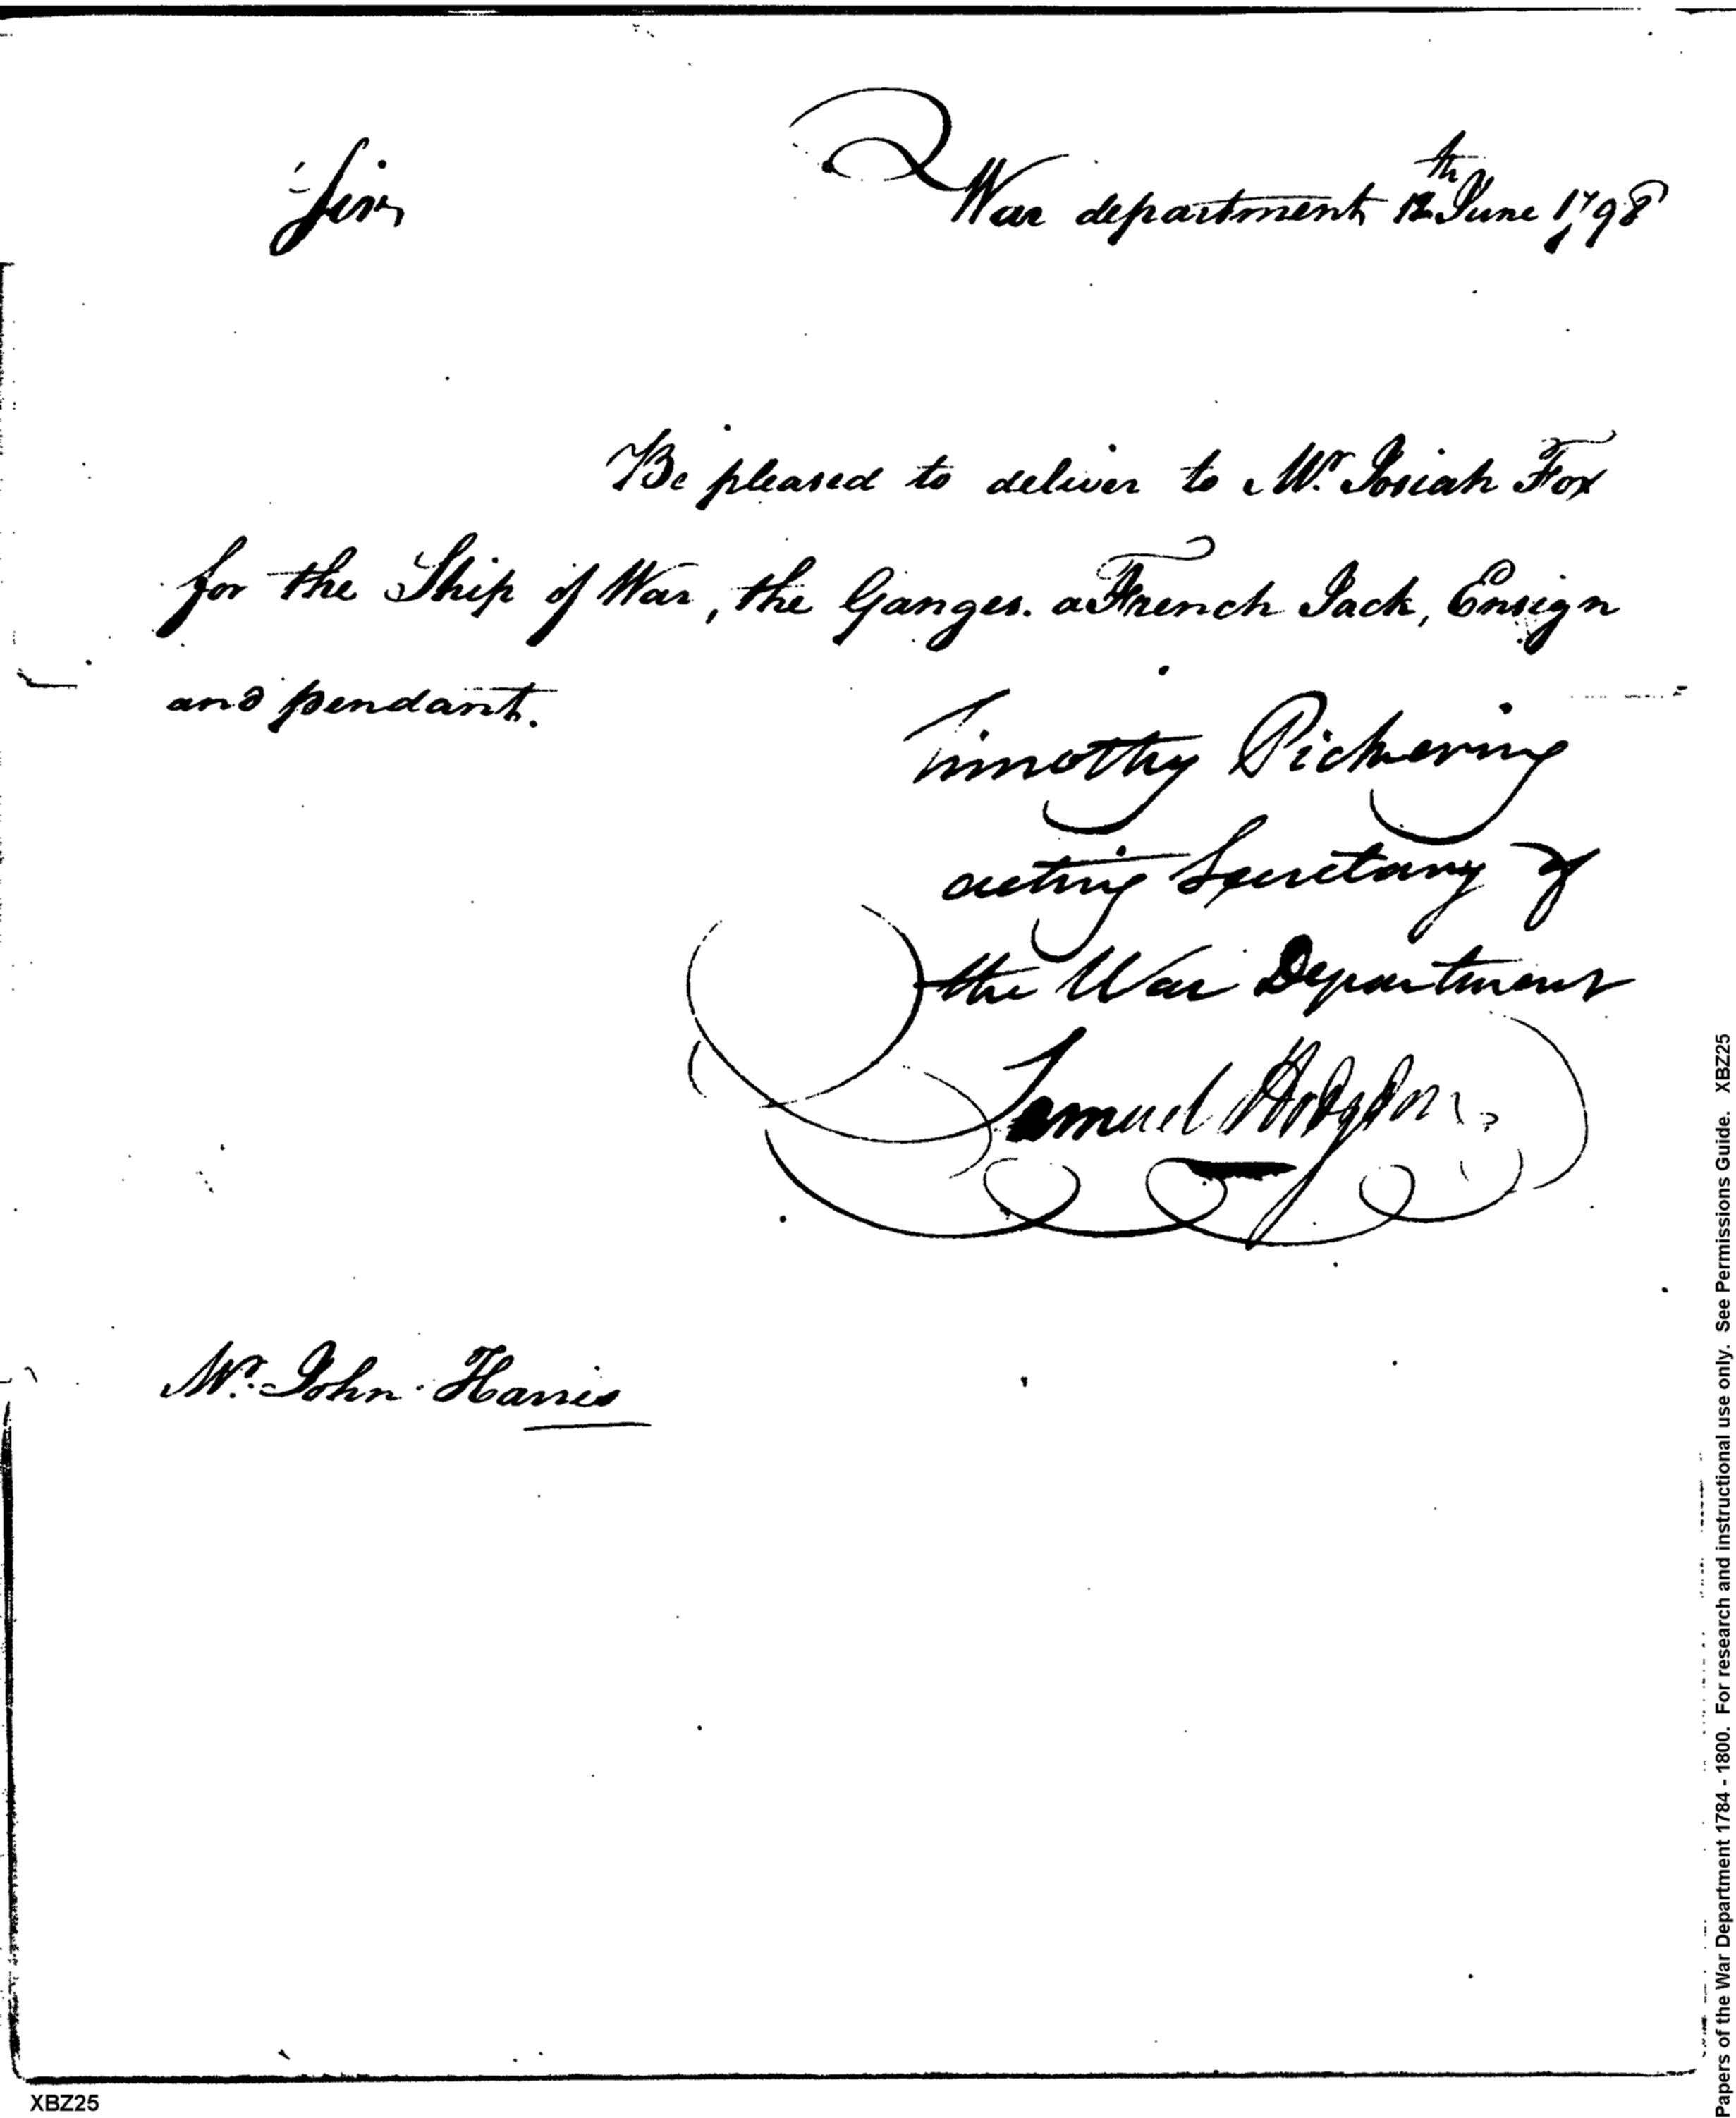 Sir War department 12th June 1798
Be pleased to deliver to Mr. Josiah Fox
for the Ship of War, the Ganges. a French Jack, Ensign
and pendant.
Timothy Pickering
acting Secretary of
the War Department
Samuel Hodgdon
Mr. John Harris
XBZ25
Papers of the War Department 1784 - 1800. For research and instructional use only. See Permissions Guide. XBZ25